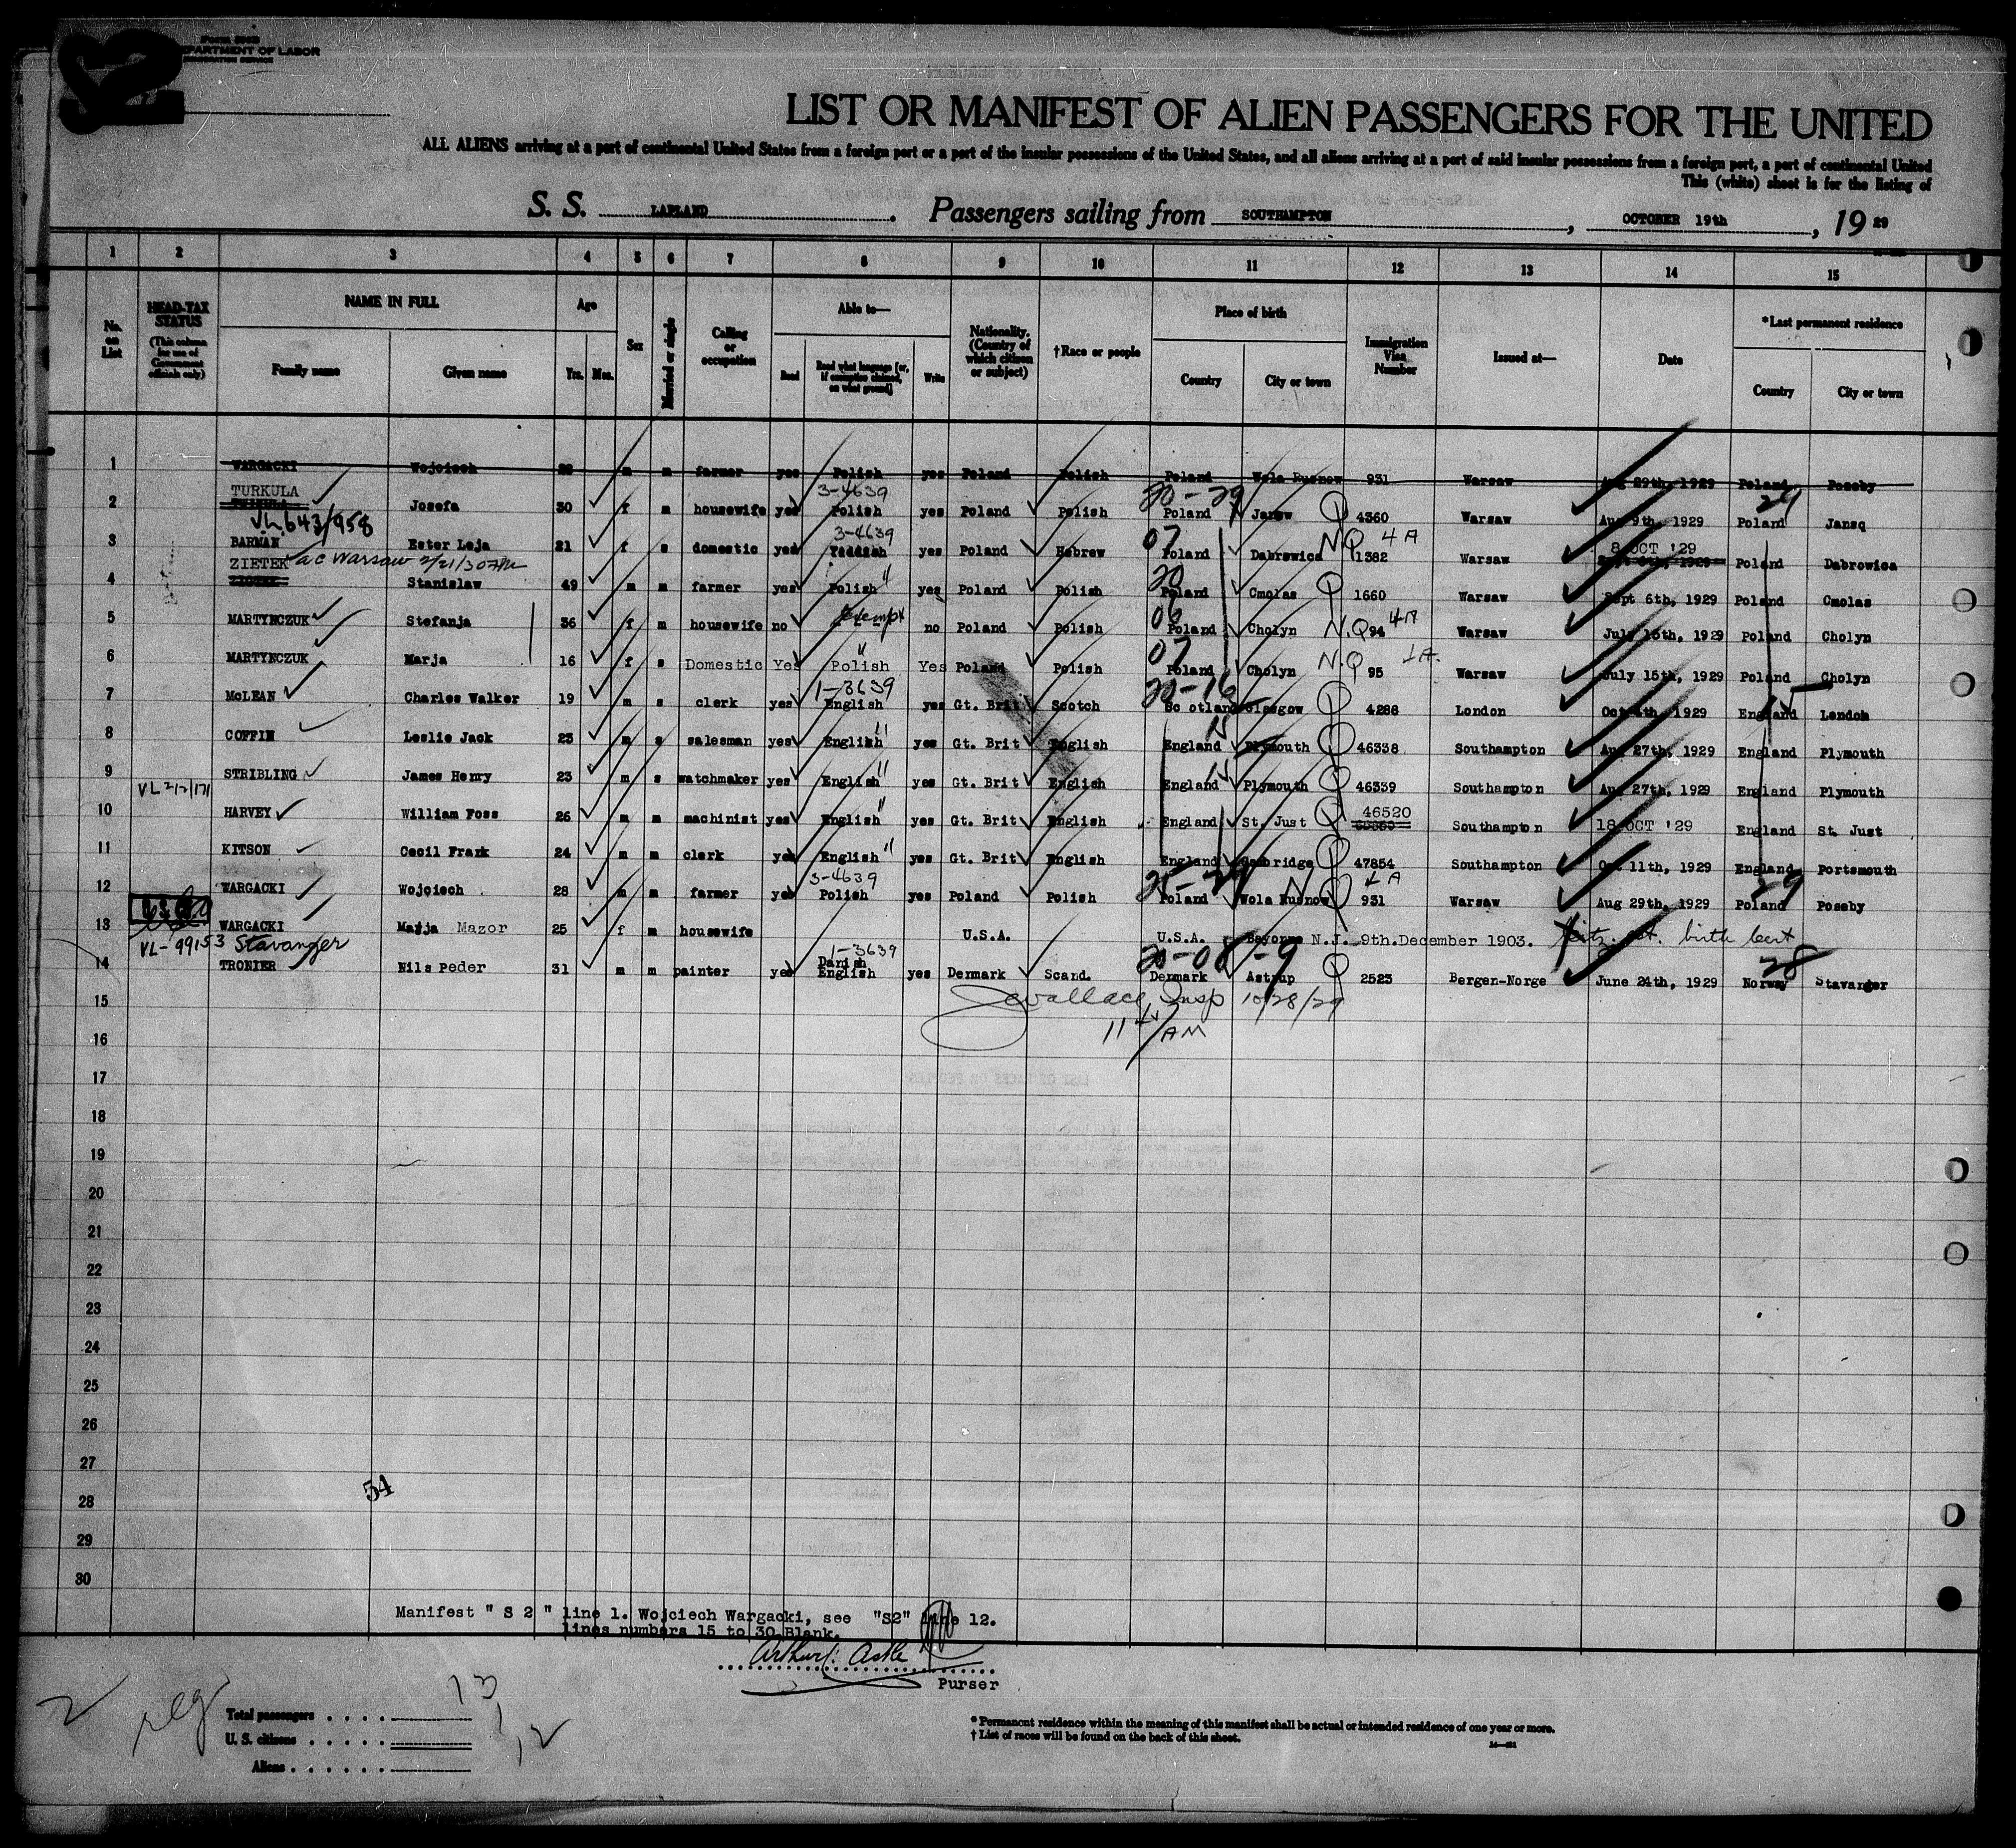 S2
DEPARTMENT OF LABOR
IMMIGRATION SERVICE
LIST OR MANIFEST OF ALIEN PASSENGERS FOR THE UNITED
ALL ALIENS arriving at a port of continental United States from a foreign port or a port of the insular possessions of the United States, and all aliens arriving at a port of said insular possessions from a foreign port, a port of continental United
This (white) sheet is for the listing of
S. S. LAPLAND. Passengers sailing from SOUTHAMPTON, OCTOBER 19th, 19 29
1 2 3 4 5 6 7 8 9 10 11 12 13 14 15
No. on List
HEAD-TAX STATUS (This column for use of Government officials only)
NAME IN FULL Family name Given name
Age Yrs. Mos.
Sex
Married or single
Calling or occupation
Able to— Read Read what language [or, if exemption claimed, on what ground] Write
Nationality. (Country of which citizen or subject)
†Race or people
Place of birth Country City or town
Immigration Visa Number
Issued at—
Date
*Last permanent residence Country City or town
1 WARGACKI Wojciech 28 m m farmer yes Polish yes Poland Polish Poland Wola Rusnow 931 Warsaw Aug 29th, 1929 Poland Poseby
TURKULA 3-4639 20-29 29
2 Josefa 30 f m housewife yes Polish yes Poland Polish Poland Janow Q 4360 Warsaw Aug 9th, 1929 Poland Jansq
VL 643/958 3-4639 07 NQ 4A 8 OCT '29
3 BARMAN Ester Leja 21 f s domestic yes Yeddish yes Poland Hebrew Poland Dabrowica 1382 Warsaw Poland Dabrowica
ZIETEK ac Warsaw
4 Stanislaw 49 m m farmer yes Polish " yes Poland Polish 20 Poland Cmolas Q 1660 Warsaw Sept 6th, 1929 Poland Cmolas
5 MARTYNCZUK Stefanja 36 f m housewife no Exempt no Poland Polish Poland Cholyn N.Q 94 4A Warsaw July 15th, 1929 Poland Cholyn
6 MARTYNCZUK Marja 16 f s Domestic Yes Polish " Yes Poland Polish 07 Poland Cholyn N.Q 95 Warsaw July 15th, 1929 Poland Cholyn
1-3639 20-16
7 McLEAN Charles Walker 19 m s clerk yes English yes Gt. Brit Scotch Scotland Glasgow Q 4288 London Oct 4th, 1929 England London
8 COFFIN Leslie Jack 23 m s salesman yes English " yes Gt. Brit English England Plymouth Q 46338 Southampton Aug 27th, 1929 England Plymouth
9 STRIBLING James Henry 23 m s watchmaker yes English " yes Gt. Brit English England Plymouth Q 46339 Southampton Aug 27th, 1929 England Plymouth
10 HARVEY William Foss 26 m m machinist yes English " yes Gt. Brit English England St. Just Q 46520 Southampton 18 OCT '29 England St. Just
11 KITSON Cecil Frank 24 m m clerk yes English " yes Gt. Brit English England Cambridge Q 47854 Southampton Oct 11th, 1929 England Portsmouth
3-4639 29
12 WARGACKI Wojciech 28 m m farmer yes Polish yes Poland Polish Poland Wola Rusnow NQ 931 Warsaw Aug 29th, 1929 Poland Poseby
13 WARGACKI Marja Mazor 25 f m housewife U.S.A. U.S.A. Bayonne N.J. 9th.December 1903. birth cert
VL-99153 Stavanger 1-3639 Danish 28
14 TRONIER Nils Peder 31 m m painter yes English yes Denmark Scand. Denmark Astrup Q 2523 Bergen-Norge June 24th, 1929 Norway Stavanger
15 Wallace, Insp 10/28/29
16 AM
17
18
19
20
21
22
23
24
25
26
27
28
29
30
54
Manifest " S 2 " line 1. Wojciech Wargacki, see "S2" line 12.
lines numbers 15 to 30 Blank.
Purser
Total passengers 13
U. S. citizens 1
Aliens 12
* Permanent residence within the meaning of this manifest shall be actual or intended residence of one year or more.
† List of races will be found on the back of this sheet.